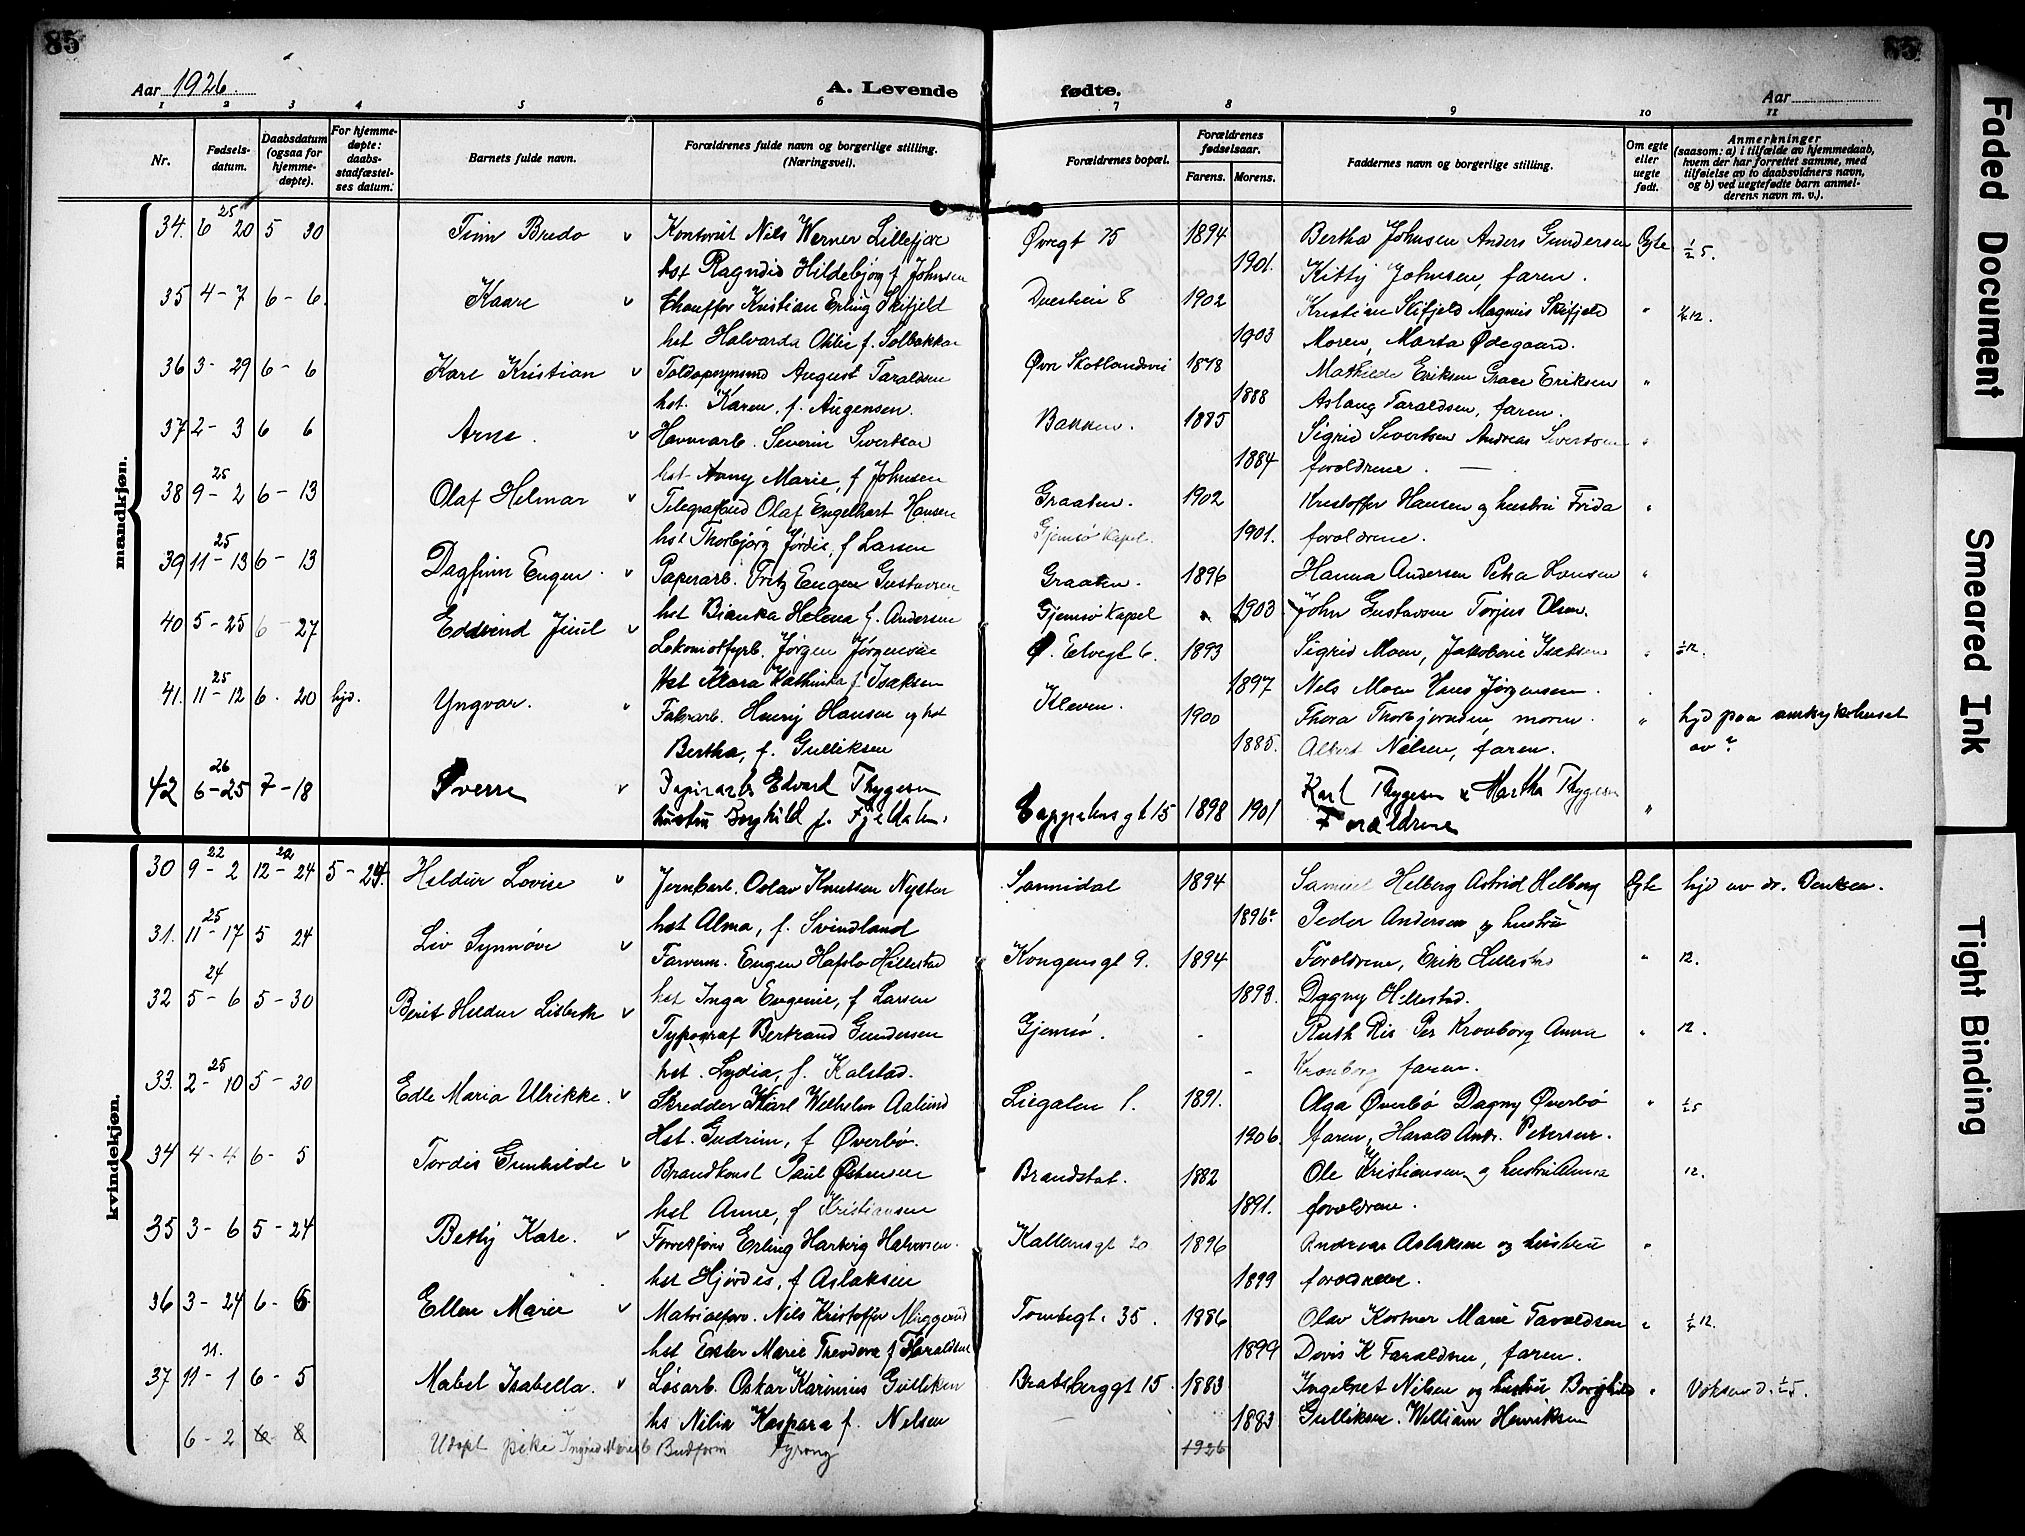 85
85
Aar 1926.
A. Levende fødte.
Aar
1 2 3 4 5 6 7 8 9 10 11
Nr.
Fødselsdatum.
Daabsdatum (ogsaa for hjemmedøpte).
For hjemmedøpte: daabsstadfæstelses datum.
Barnets fulde navn.
Forældrenes fulde navn og borgerlige stilling. (Næringsvei).
Forældrenes bopæl.
Forældrenes fødselsaar.
Farens. Morens.
Faddernes navn og borgerlige stilling.
Om egte eller uegte født.
Anmerkninger
(saasom: a) i tilfælde av hjemmedaab, hvem der har forrettet samme, med tilføielse av to daabsvidners navn, og b) ved uegtefødte barn anmelderens navn m. v.).
mandkjøn.
34. 6 25 20 5 30 Finn Bredo v Nils Werner Lillefjære Øvregt 75 1894 Bertha Johnsen Anders Gundersen Egte ½ 5.
hst Ragndid Hildebjørg f Johnsen 1901. Kitty Johnsen, faren.
35 4 - 7 6 - 6. Kaare v Chauffør Kristian Erling Skifjeld 8 1902 Kristian Skifjeld Magnus Skifjeld "
hst Halvarda Otilie f. Solbakken 1903 Moren, Marta Ødegaard.
36 3 - 29 6 - 6 Karl Kristian v August Taraldsen Øvre 1878 Mathilde Eriksen Grace Eriksen "
hst. Karen, f. Augensen. 1888 Aslaug Taraldsen, faren.
37 2 - 3 6 6 Arne. v Havnearb. Severin Sivertsen Bakken. 1885 Sigrid Sivertsen Andreas Sivertsen "
hst Anny Marie, f Johnsen 1884 forældrene.
38 9 - 25 2 6 - 13 Olaf Helmar v Olaf Engelhart Hansen Graaten. 1902 Kristoffer Hansen og hustru Frida "
hst Thorbjørg Jørdis, f Larsen Gjemsø Kapel. 1901. forældrene.
39 11 - 25 13 6 - 13 Dagfinn Eugen v Papirarb. Fritz Eugen Gustavsen Graaten. 1896 Hanna Andersen Petra Hansen "
hst Bianka Helena f. Andersen Gjemsø Kapel 1903 John Gustavsen Torjus Olsen
40 5 - 25 6 - 27 Edvind Juul v Lokomotfyrb. Jørgen Jørgensen Ø. Elvegt 6. 1893 Sigrid Moen, "
Hst Klara Kathinka f Isaksen 1897 Nils Moen Hans Jørgensen.
41. 11 - 25 12 6 - 20 hjd. Yngvar. Fabrarb. Henrij Hansen og hst Kleven. 1900 Thora Thorbjørnsen, moren. " hjd paa av?
Bertha, f. Gulliksen 1885. Albert Nilsen, faren.
42 6 - 26 25 7 - 18 Sverre v Papirarb Edvard Thygesen Cappelensgt 15 1898 1901 Karl Thygesen & Martha Thygesen "
hustru Borghild f. Fjeldalen. Forældrene
kvindekjøn.
30 9 - 22 2 12 - 22 24 5 - 24. Heldur Lovise v Jernbarb. Oslav Knutsen Sannidal 1894 Samuel Helberg Astrid Helberg Egte hjd av dr.
hst Alma, f. Svindland 1896? Peder Andersen og hustru
31. 11 - 25 17 5 24 Liv Synnøve v Farverm. Eugen Hafslo Hillestad Kongensgt 9. 1894 Forældrene, Erik Hillestad " 12.
hst Inga Eugenie, f Larsen 1893. Dagny Hillestad.
32 5 - 24 6 5 - 30 Berit Heldur Lisbeth v Typograf Bertrand Gundersen Gjemsø. - Ruth Ris Per Kronborg Anna " 12.
hst. Lydia, f. Kalstad. - Kronborg faren.
33. 2 - 25 10 5 - 30 Edle Maria Ulrikke. v Skredder Karl Wilhelm Aalund Liegaten 1. 1891. Olga Øverbø Dagny Øverbø " ½ 5
Hst. Gudrun, f Øverbø. 1906. faren, Harald Andr. Petersen.
34 4 - 4 6 - 5 Tordis Gunhilde v Brandkonst Paul Brandstat. 1882 Ole Kristiansen og hustru Anna 12.
hst Anne, f Kristiansen 1891. forældrene.
35 3 - 6 5 - 24 Betty Kare. v Erling Hartvig Halvorsen. 20 1896 Andreas Aslaksen og hustru "
hst Hjørdis, f Aslaksen 1899 forældrene.
36 3 - 24 6 - 6 Ellen Marie v Nils Kristoffer Tomtegt. 35. 1886 Olav Marie Taraldsen "
hst Ester Marie Theodora f Taraldsen 1899 Doris K Taraldsen, faren.
37 11 - 1 6 - 5 Mabel Isabella. v Løsarb. Oskar Karinius Gulliksen Bratsberggt 15. 1883 Nilsen og hustru Borghild "
hs Nilia Kaspara f. Nilsen 1883 Gulliksen. William Henriksen
6 - 2 6 - 8 Udøpt pike 1926
Faded Document
Smeared Ink
Tight Binding